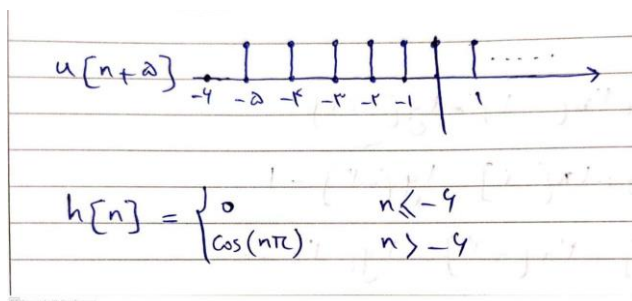 u[n+۵]
-۶ -۵ -۴ -۳ -۲ -۱ ۱ .....
h[n] = { 0 n ≤ -۶
cos(nπ) n > -۶